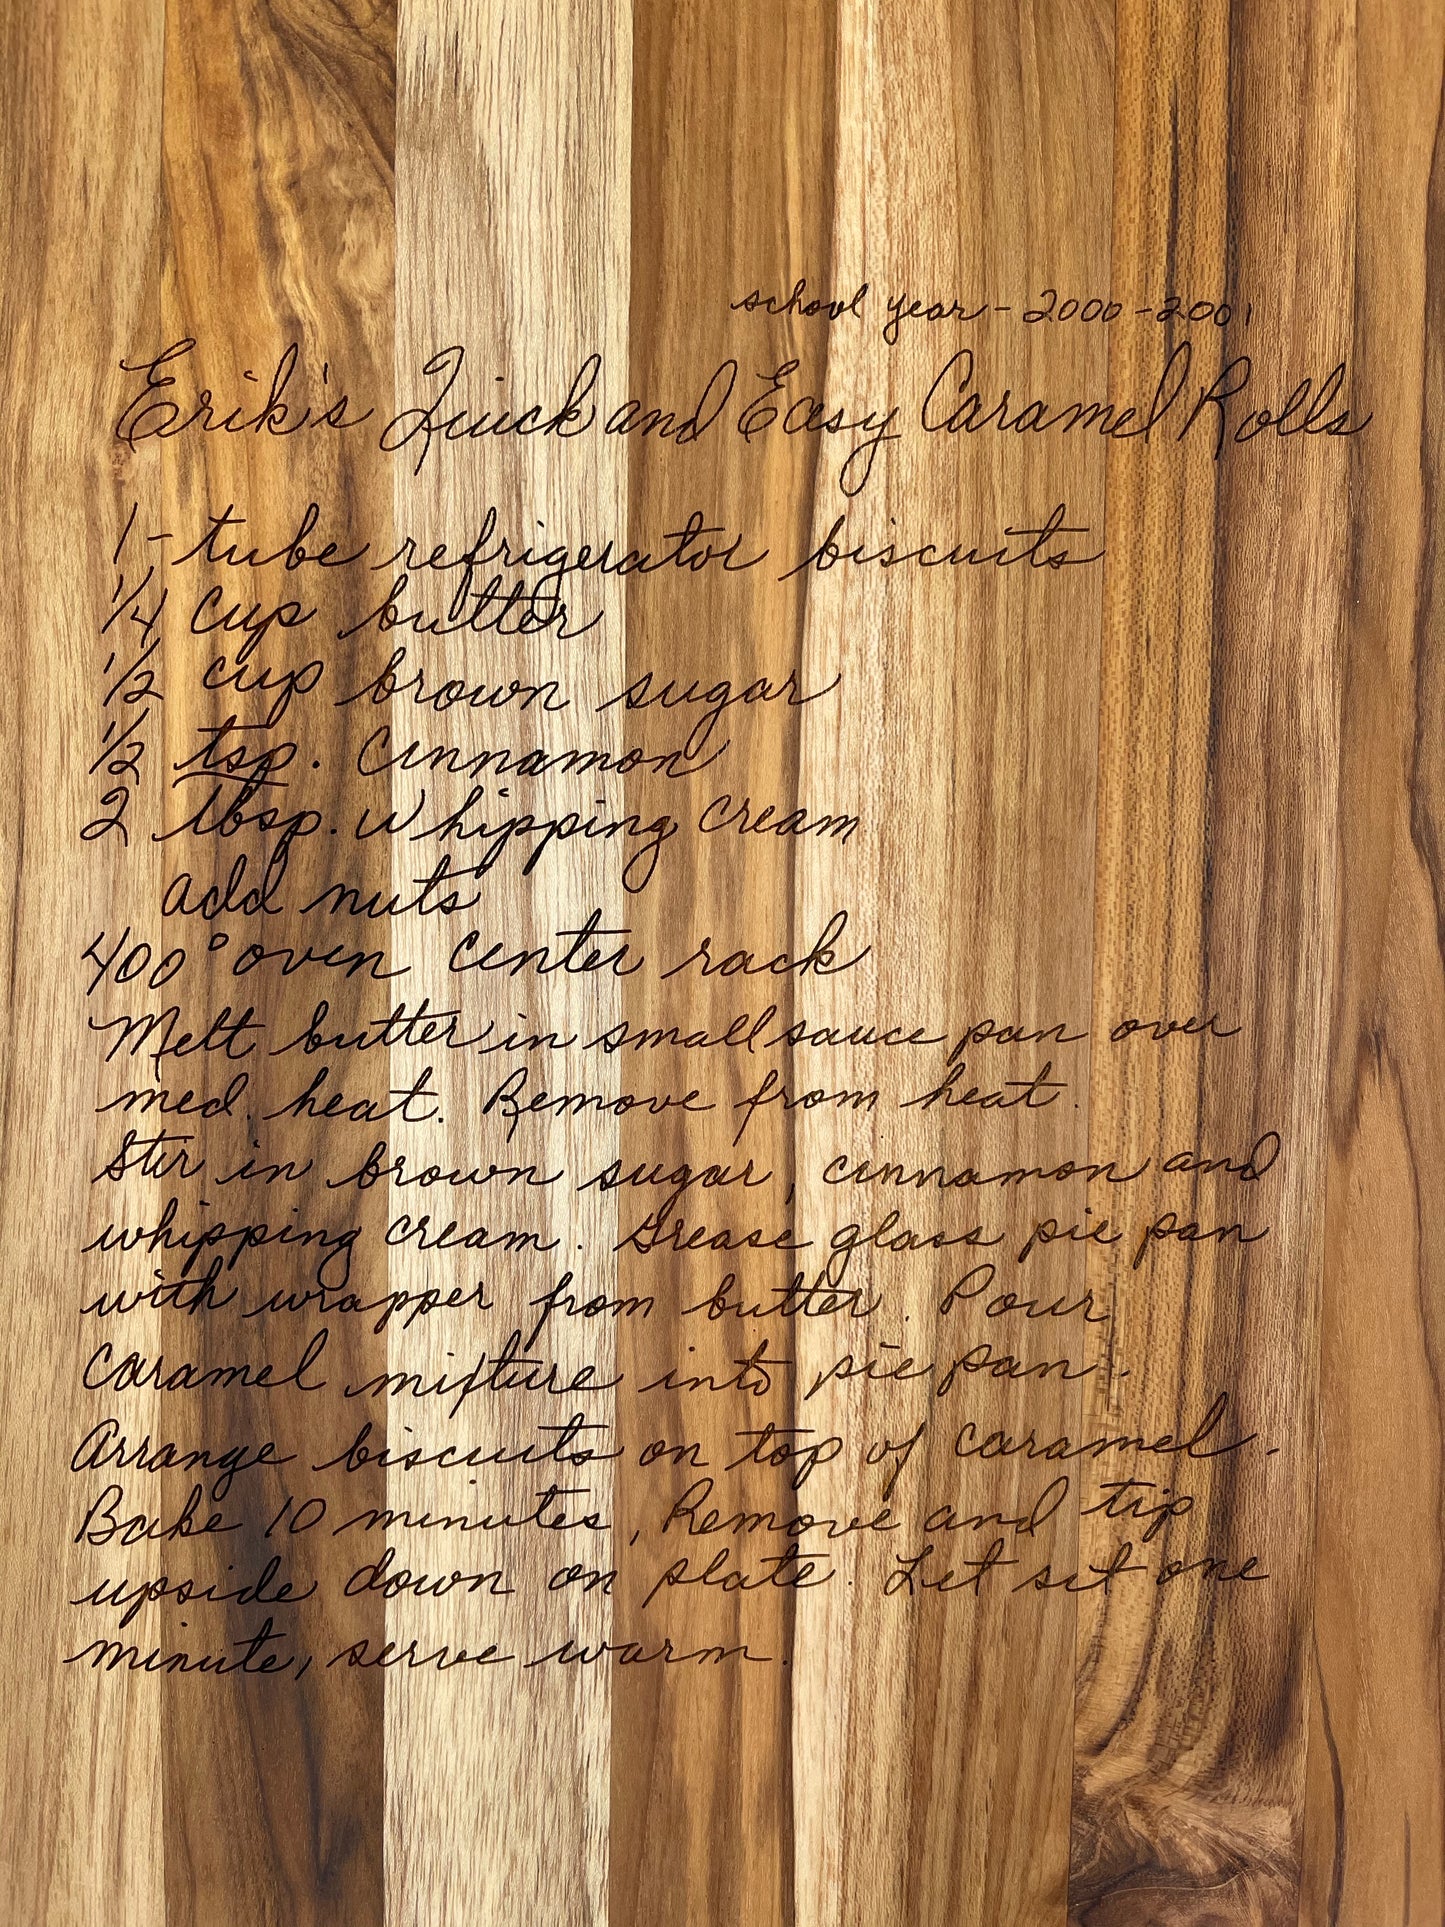 school year - 2000 - 2001
Erik's Quick and Easy Caramel Rolls
1 - tube refrigerator biscuits
1/4 cup butter
1/2 cup brown sugar
1/2 tsp. cinnamon
2 tbsp. whipping cream
add nuts
400° oven center rack
Melt butter in small sauce pan over
med. heat. Remove from heat.
Stir in brown sugar, cinnamon and
whipping cream. Grease glass pie pan
with wrapper from butter. Pour
caramel mixture into pie pan.
Arrange biscuits on top of caramel.
Bake 10 minutes, Remove and tip
upside down on plate. Let set one
minute, serve warm.